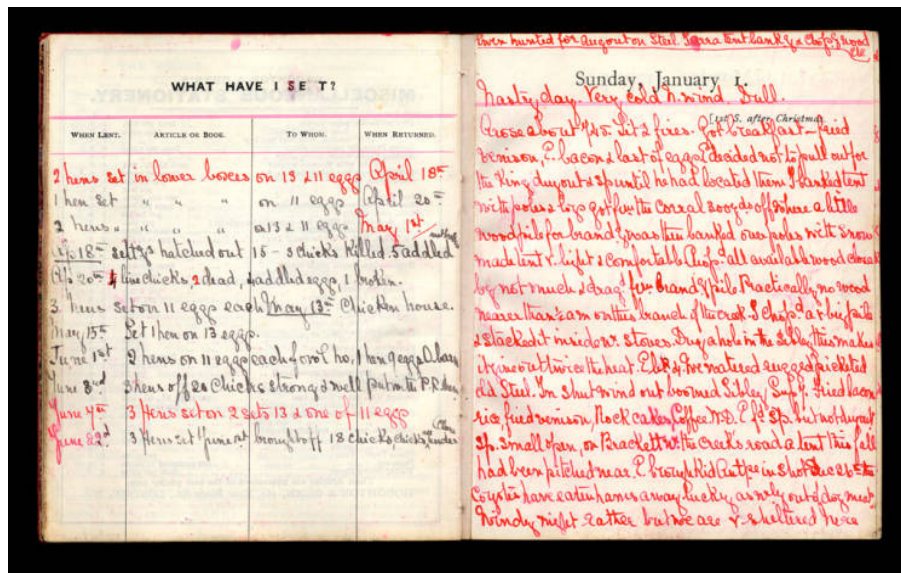 WHAT HAVE I SET?
WHEN LENT. ARTICLE OR BOOK. TO WHOM. WHEN RETURNED.
2 hens set in lower boxes on 13 & 11 eggs April 18th
1 hen set " " " on 11 eggs April 20th
2 hens " " " " on 13 & 11 eggs May 1st
Ap. 18th hatched out 15 - 3 chicks killed. 5 addled
Ap 20th fine chicks, 2 dead, addled eggs, 1 broken.
3 hens set on 11 eggs each May 13th Chicken house.
May 15th Set 1 hen on 13 eggs.
June 1st 2 hens on 11 eggs each fowl ho. 1 hen
June 3rd 3 hens off 20 Chicks strong & well put into P.R.
June 4th 3 Hens set on 2 sets 13 & one of 11 eggs
June 22d 3 Hens set June 1st brought off 18 chicks
hunted for dugout on Steel. tent bank & Chop wood
Sunday, January 1.
[1st S. after Christmas.
Nasty day. Very cold N. wind. Dull.
Arose about 7/45. Lit 2 fires. Got breakfast - fried
venison, E. bacon & last of eggs E decided not to pull out for
the King dugout & sp until he had located them I banked tent
with poles & logs got fr. the corral 300 yds off where a little
woodpile for brandg was then banked over poles with snow
made tent V. light & comfortable Chop. all available wood close
by not much & drag. fr. brandg pile Practically no wood
nearer than on this branch of the creek. I Chop. a big pile
& stacked it inside w. stoves. Dug a hole in the Sibley this makes
it give out twice the heat.
old Steel. In shut wind out boomed Sibley Sup. Fried bacon
rice, fried venison, Rock cakes, Coffee N.B. E fd Sp. but not dugout
Sp. small open, on Brackett w. the creeks road a tent this fall
had been pitched near. E brought Kid Antpe in shot Dec 26th the
Coyotes have eaten hams away lucky as nrly out of dog meat
Windy night rather but we are V. sheltered here